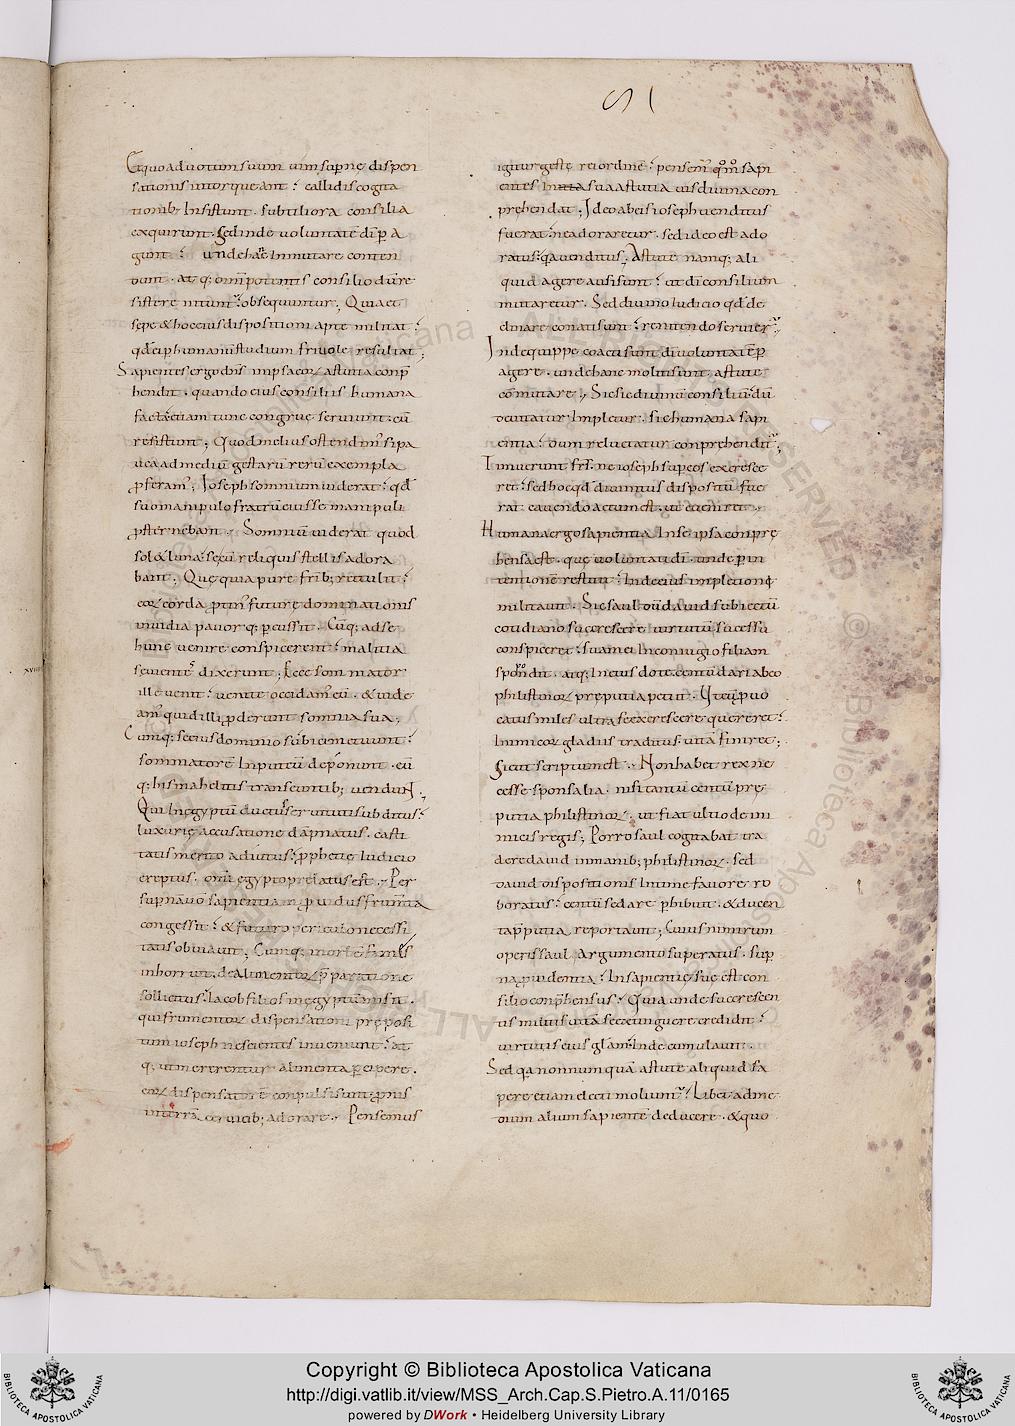 Et quo ad uotum suum uim supnę dispen
sationis intorqueant; callidis cogita
tionib; insistunt. subtiliora consilia
exquirunt. Sed inde uoluntatē dī ꝑ a
gunt; unde hāc inmutare conten
dunt. atq; omīpotentis consilio dū re
sistere nitunt̄ obsequuntur; Quia et
sępe & hoc eius dispositioni apte militat;
qđ ei ꝑ humanū studium friuole resultat;
Sapientes ergo dn̄s in ipsa eoꝝ astutia conp̄
hendit. quando eius consiliis humana
facta etiam tunc congruę seruiunt; cū
resistunt; Quod melius ostendim̄ si pa
uca ad mediū gestarū rerū exempla
ꝓferam̄; Ioseph somnium uiderat; qđ
suo manipulo fratrū eius se manipuli
ꝓsternebant. Somniū uiderat quod
sol & luna secū reliquis stellis adora
bant; Quę quia pure frīb; retulit;
eoꝝ corda ꝓtin̄ futurę dominationis
inuidia pauorq; ꝑcussit. Cūq; ad se
hunc uenire conspicerent; malitia
seuientes dixerunt; Ecce somniator
ille uenit; uenite occidam̄ eū. & uide
am̄ quid illi ꝓderunt somnia sua;
Cumq; se eius dominio subici metuunt;
somniatorē in puteū deponunt. eū
q; hismahelitis transeuntib; uendunt.
Qui in egyptū ductus seruituti subditus;
luxurię accusatione dāpnatus. casti
tatis merito adiutus; ꝓphetię iudicio
ereptus. omī egypto prelatus est. Per
supnā uō sapientiā ꝓuidus frumta
congessit; & futuro periculo necessi
tatis obuiauit; Cumq; in orbē famis
inhorruit. de alimentoꝝ pparatione
sollicitus; iacob filios in egyptū misit.
qui frumentoꝝ dispensationi pręposi
tum ioseph nescientes inueniunt; at
q; ut mererentur alimenta ꝑcipere.
eoꝝ dispensatorē conpulsi sunt ꝓnis
in terrā ceruicib; adorare. Pensemus
igitur gestę rei ordinē; pensem̄ qm̄o sapi
entes in sua astutia uis diuina con
prehendat; Ideo ab eis ioseph uenditus
fuerat; ne adoraretur. sed ideo est ado
ratus; qa uenditus; Astute namq; ali
quid agere ausi sunt; ut dī consilium
mutaretur. Sed diuino iudicio qđ de
clinare conati sunt; renitendo seruier̄;
Inde quippe coacti sunt dī uoluntatē ꝑ
agere. unde hanc moliti sunt. astute
cōmutare; Sic sic diuinū consiliū dū
deuitatur impletur. sic humana sapi
entia; dum reluctatur conprehendit̄;
Timuerunt fr̄s ne ioseph sup eos excresce
ret; sed hoc qđ diuinitus dispositū fue
rat cauendo actum est. ut eueniret.
Humana ergo sapientia in se ipsa conpre
hensa est. que uoluntati dī. unde ꝑ in
tentionē restitit; inde eius impletionę
militauit. Sic saul dū dauid subiectū
cotidiano succrescere uirtutū successu
conspiceret; suam ei in coniugio filiam
spopondit. atq; in eius dote. centū dari a bec
philistinoꝝ pręputia petiit. Ut cū ꝓuo
catus miles ultra se excrescere quereret;
inimicoꝝ gladiis traditus. uitā finiret;
Sicut scriptum est. Non habet rex ne
cesse sponsalia. nisi tantū centū prę
putia philistinoꝝ. ut fiat ultio de ini
micis regis; Porro saul cogitabat tra
dere dauid in manib; philistinoꝝ. sed
dauid dispositionis intimę fauore ro
boratus; centū se dare ꝑhibuit. & ducen
ta pputia reportauit; Cuius nimirum
operis saul argumento superatus. sup
na ꝓuidentia; in sapientię suę est con
silio conprehensus; Quia unde succrescen
tis militis uitā se extinguere credidit;
uirtutis eius glām inde cumulauit.
Sed qa nonnumquā astute aliquid sa
pere etiam electi moliunt̄; Libet ad me
dium alium sapientē deducere. & quo
Copyright © Biblioteca Apostolica Vaticana
http://digi.vatlib.it/view/MSS_Arch.Cap.S.Pietro.A.11/0165
powered by DWork • Heidelberg University Library